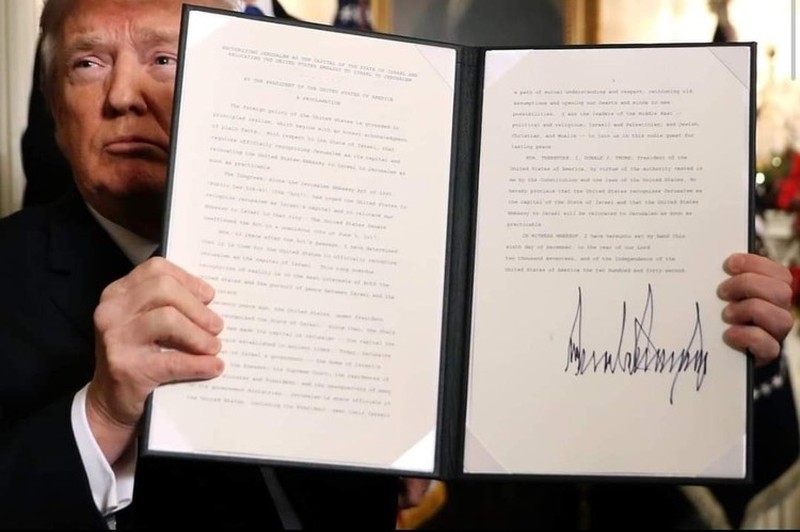 RECOGNIZING JERUSALEM AS THE CAPITAL OF THE STATE OF ISRAEL AND
RELOCATING THE UNITED STATES EMBASSY TO ISRAEL TO JERUSALEM
BY THE PRESIDENT OF THE UNITED STATES OF AMERICA
A PROCLAMATION
The foreign policy of the United States is grounded in
principled realism, which begins with an honest acknowledgment
of plain facts. With respect to the State of Israel, that
requires officially recognizing Jerusalem as its capital and
relocating the United States Embassy to Israel to Jerusalem as
soon as practicable.
The Congress, since the Jerusalem Embassy Act of 1995
(Public Law 104-45) (the "Act"), has urged the United States to
recognize Jerusalem as Israel's capital and to relocate our
Embassy to Israel to that city. The United States Senate
reaffirmed the Act in a unanimous vote on June 5, 2017.
Now, 22 years after the Act's passage, I have determined
that it is time for the United States to officially recognize
Jerusalem as the capital of Israel. This long overdue
recognition of reality is in the best interests of both the
United States and the pursuit of peace between Israel and the
years ago, the United States, under President
recognized the State of Israel. Since then, the State
has made its capital in Jerusalem -- the capital the
people established in ancient times. Today, Jerusalem
of Israel's government -- the home of Israel's
the Knesset; its Supreme Court; the residences of
Minister and President; and the headquarters of many
government ministries. Jerusalem is where officials of
the United States, including the President, meet their Israeli
a path of mutual understanding and respect, rethinking old
assumptions and opening our hearts and minds to new
possibilities. I ask the leaders of the Middle East --
political and religious; Israeli and Palestinian; and Jewish,
Christian, and Muslim -- to join us in this noble quest for
lasting peace.
NOW, THEREFORE, I, DONALD J. TRUMP, President of the
United States of America, by virtue of the authority vested in
me by the Constitution and the laws of the United States, do
hereby proclaim that the United States recognizes Jerusalem as
the capital of the State of Israel and that the United States
Embassy to Israel will be relocated to Jerusalem as soon as
practicable.
IN WITNESS WHEREOF, I have hereunto set my hand this
sixth day of December, in the year of our Lord
two thousand seventeen, and of the Independence of the
United States of America the two hundred and forty-second.